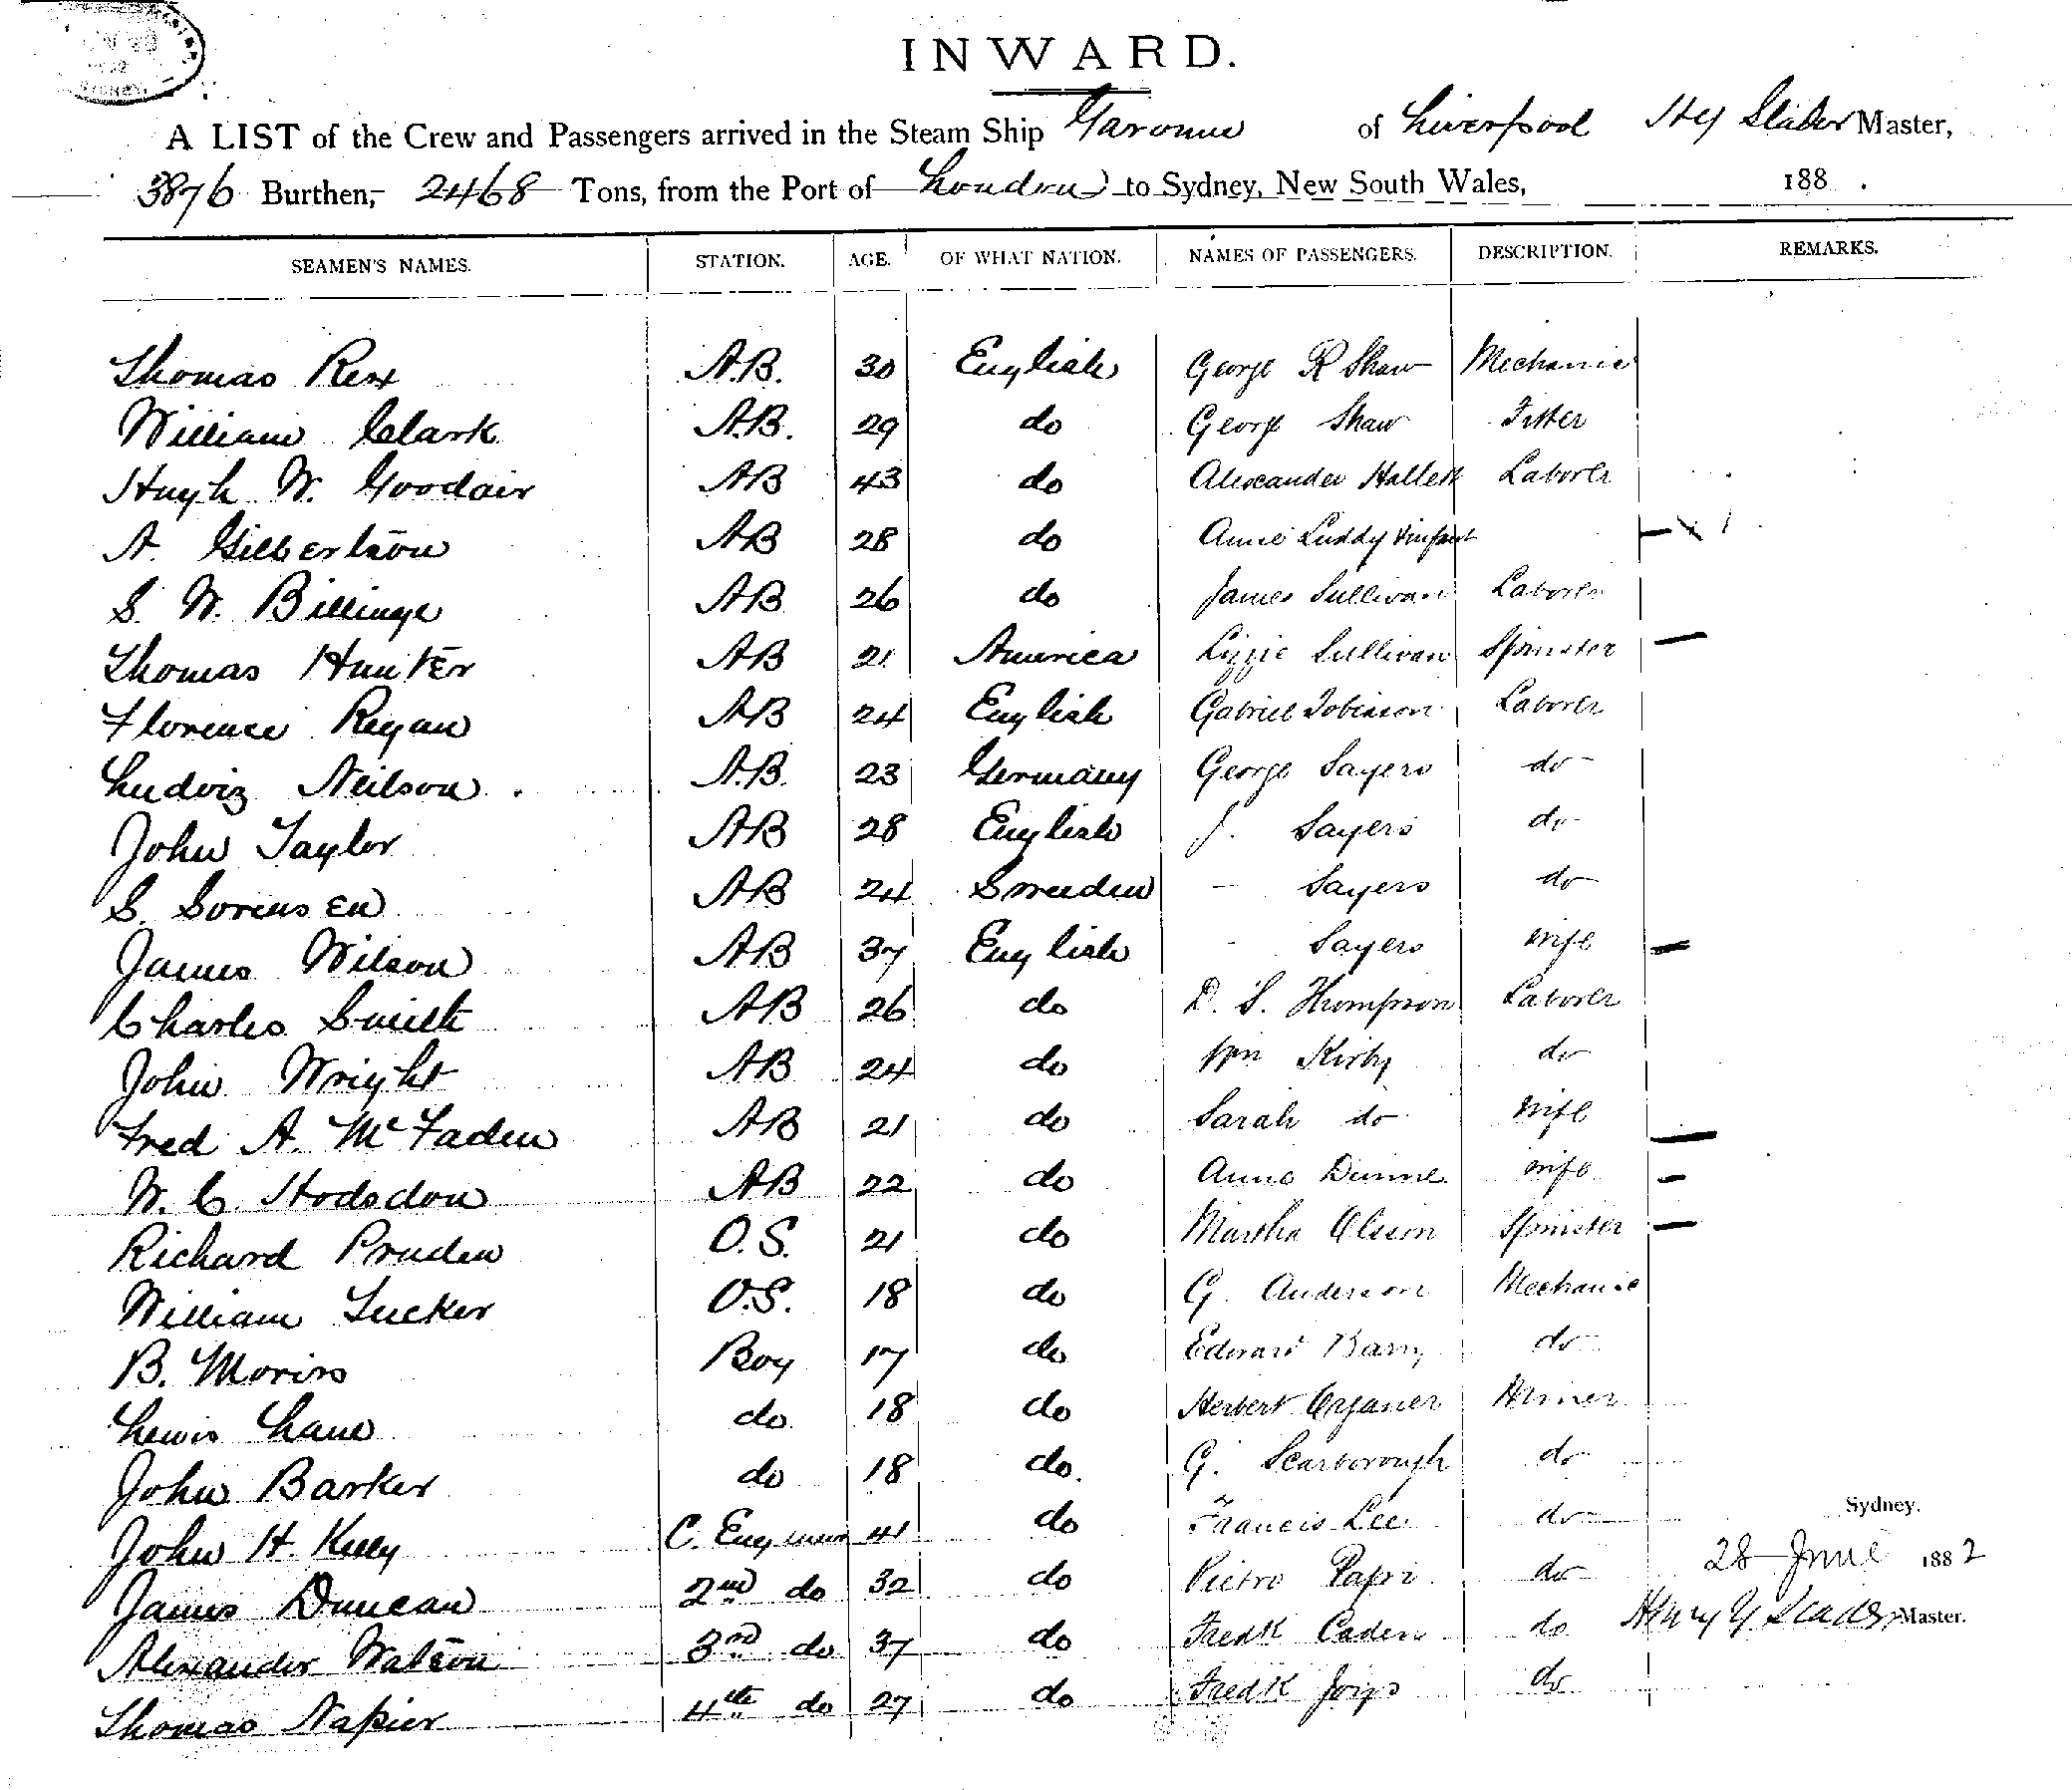 INWARD.
A LIST of the Crew and Passengers arrived in the Steam Ship Garonne of Liverpool Hy Master,
3876 Burthen, 2468 Tons, from the Port of London to Sydney, New South Wales, 188 .
SEAMEN'S NAMES. STATION. AGE. OF WHAT NATION. NAMES OF PASSENGERS. DESCRIPTION. REMARKS.
Thomas Rex A.B. 30 English George R Shaw Mechanic
William Clark A.B. 29 do George Shaw Fitter
Hugh W. Goodair AB 43 do Alexander Hallett Laborer
A. Gilbertson AB 28 do Annie Luddy & infant
S. W. Billinge AB 26 do James Sullivan Laborer
Thomas Hunter AB 21 America Lizzie Sullivan Spinster
Florence Regan AB 24 English Gabriel Tobiason Laborer
Ludvig Neilson A.B. 23 Germany George Sayers do
John Taylor AB 28 English J. Sayers do
S. Sorensen AB 24 Sweeden - Sayers do
James Wilson AB 37 English - Sayers wife
Charles Smith AB 26 do D. S. Thompson Laborer
John Wright AB 24 do Wm Kirby do
Fred A. McFaden AB 21 do Sarah do wife
W. C. Hodsdon AB 22 do Anne Dunne wife
Richard Pruden O.S. 21 do Martha Olsson Spinster
William Tucker O.S. 18 do G. Anderson Mechanic
B. Moriss Boy 17 do Edward Barry do
Lewis Lane do 18 do Herbert
John Barker do 18 do G. Scarborough do
Sydney.
John H. Kelly C. Engineer 41 do Francis Lee do
28 June 1882
James Duncan 2nd do 32 do Pietro Papi do
Master.
Alexander Watson 3rd do 37 do Fredk Caden do
Thomas Napier 4th do 27 do Fredk do